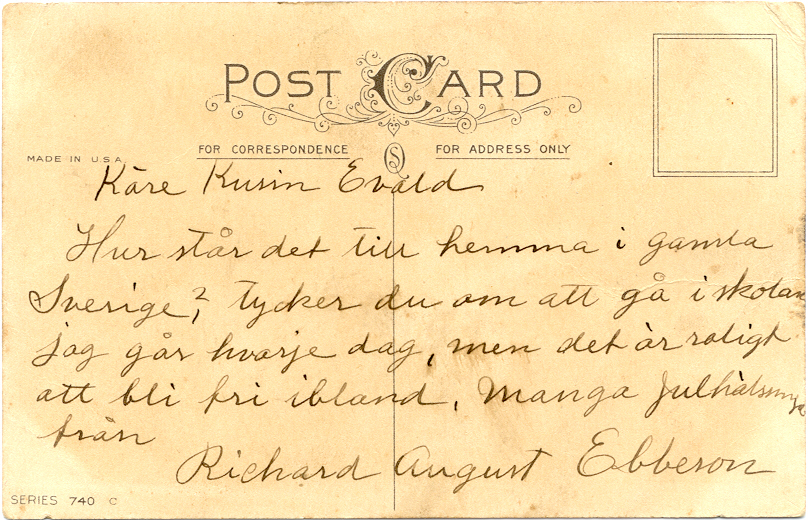 POST CARD
FOR CORRESPONDENCE
FOR ADDRESS ONLY
MADE IN U.S.A.
Käre Kusin Evald
Hur står det till hemma i gamla
Sverige? tycker du om att gå i skolan
jag går hvarje dag, men det är roligt
att bli fri ibland. Manga Julhälsninga
från
Richard August Ebbeson
SERIES 740 C